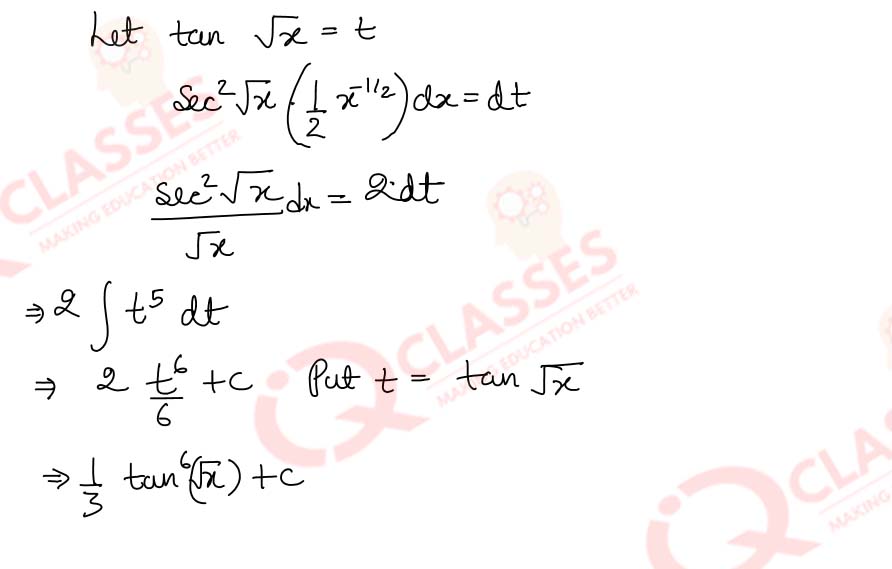 Let tan √x = t
sec² √x (1/2 x^-1/2) dx = dt
sec² √x / √x dx = 2·dt
⇒ 2 ∫ t⁵ dt
⇒ 2 t⁶/6 + c Put t = tan √x
⇒ 1/3 tan⁶(√x) + c
CLASSES
MAKING EDUCATION BETTER
IQ CLASSES
MAKING EDUCATION BETTER
IQ CLA
MAKING